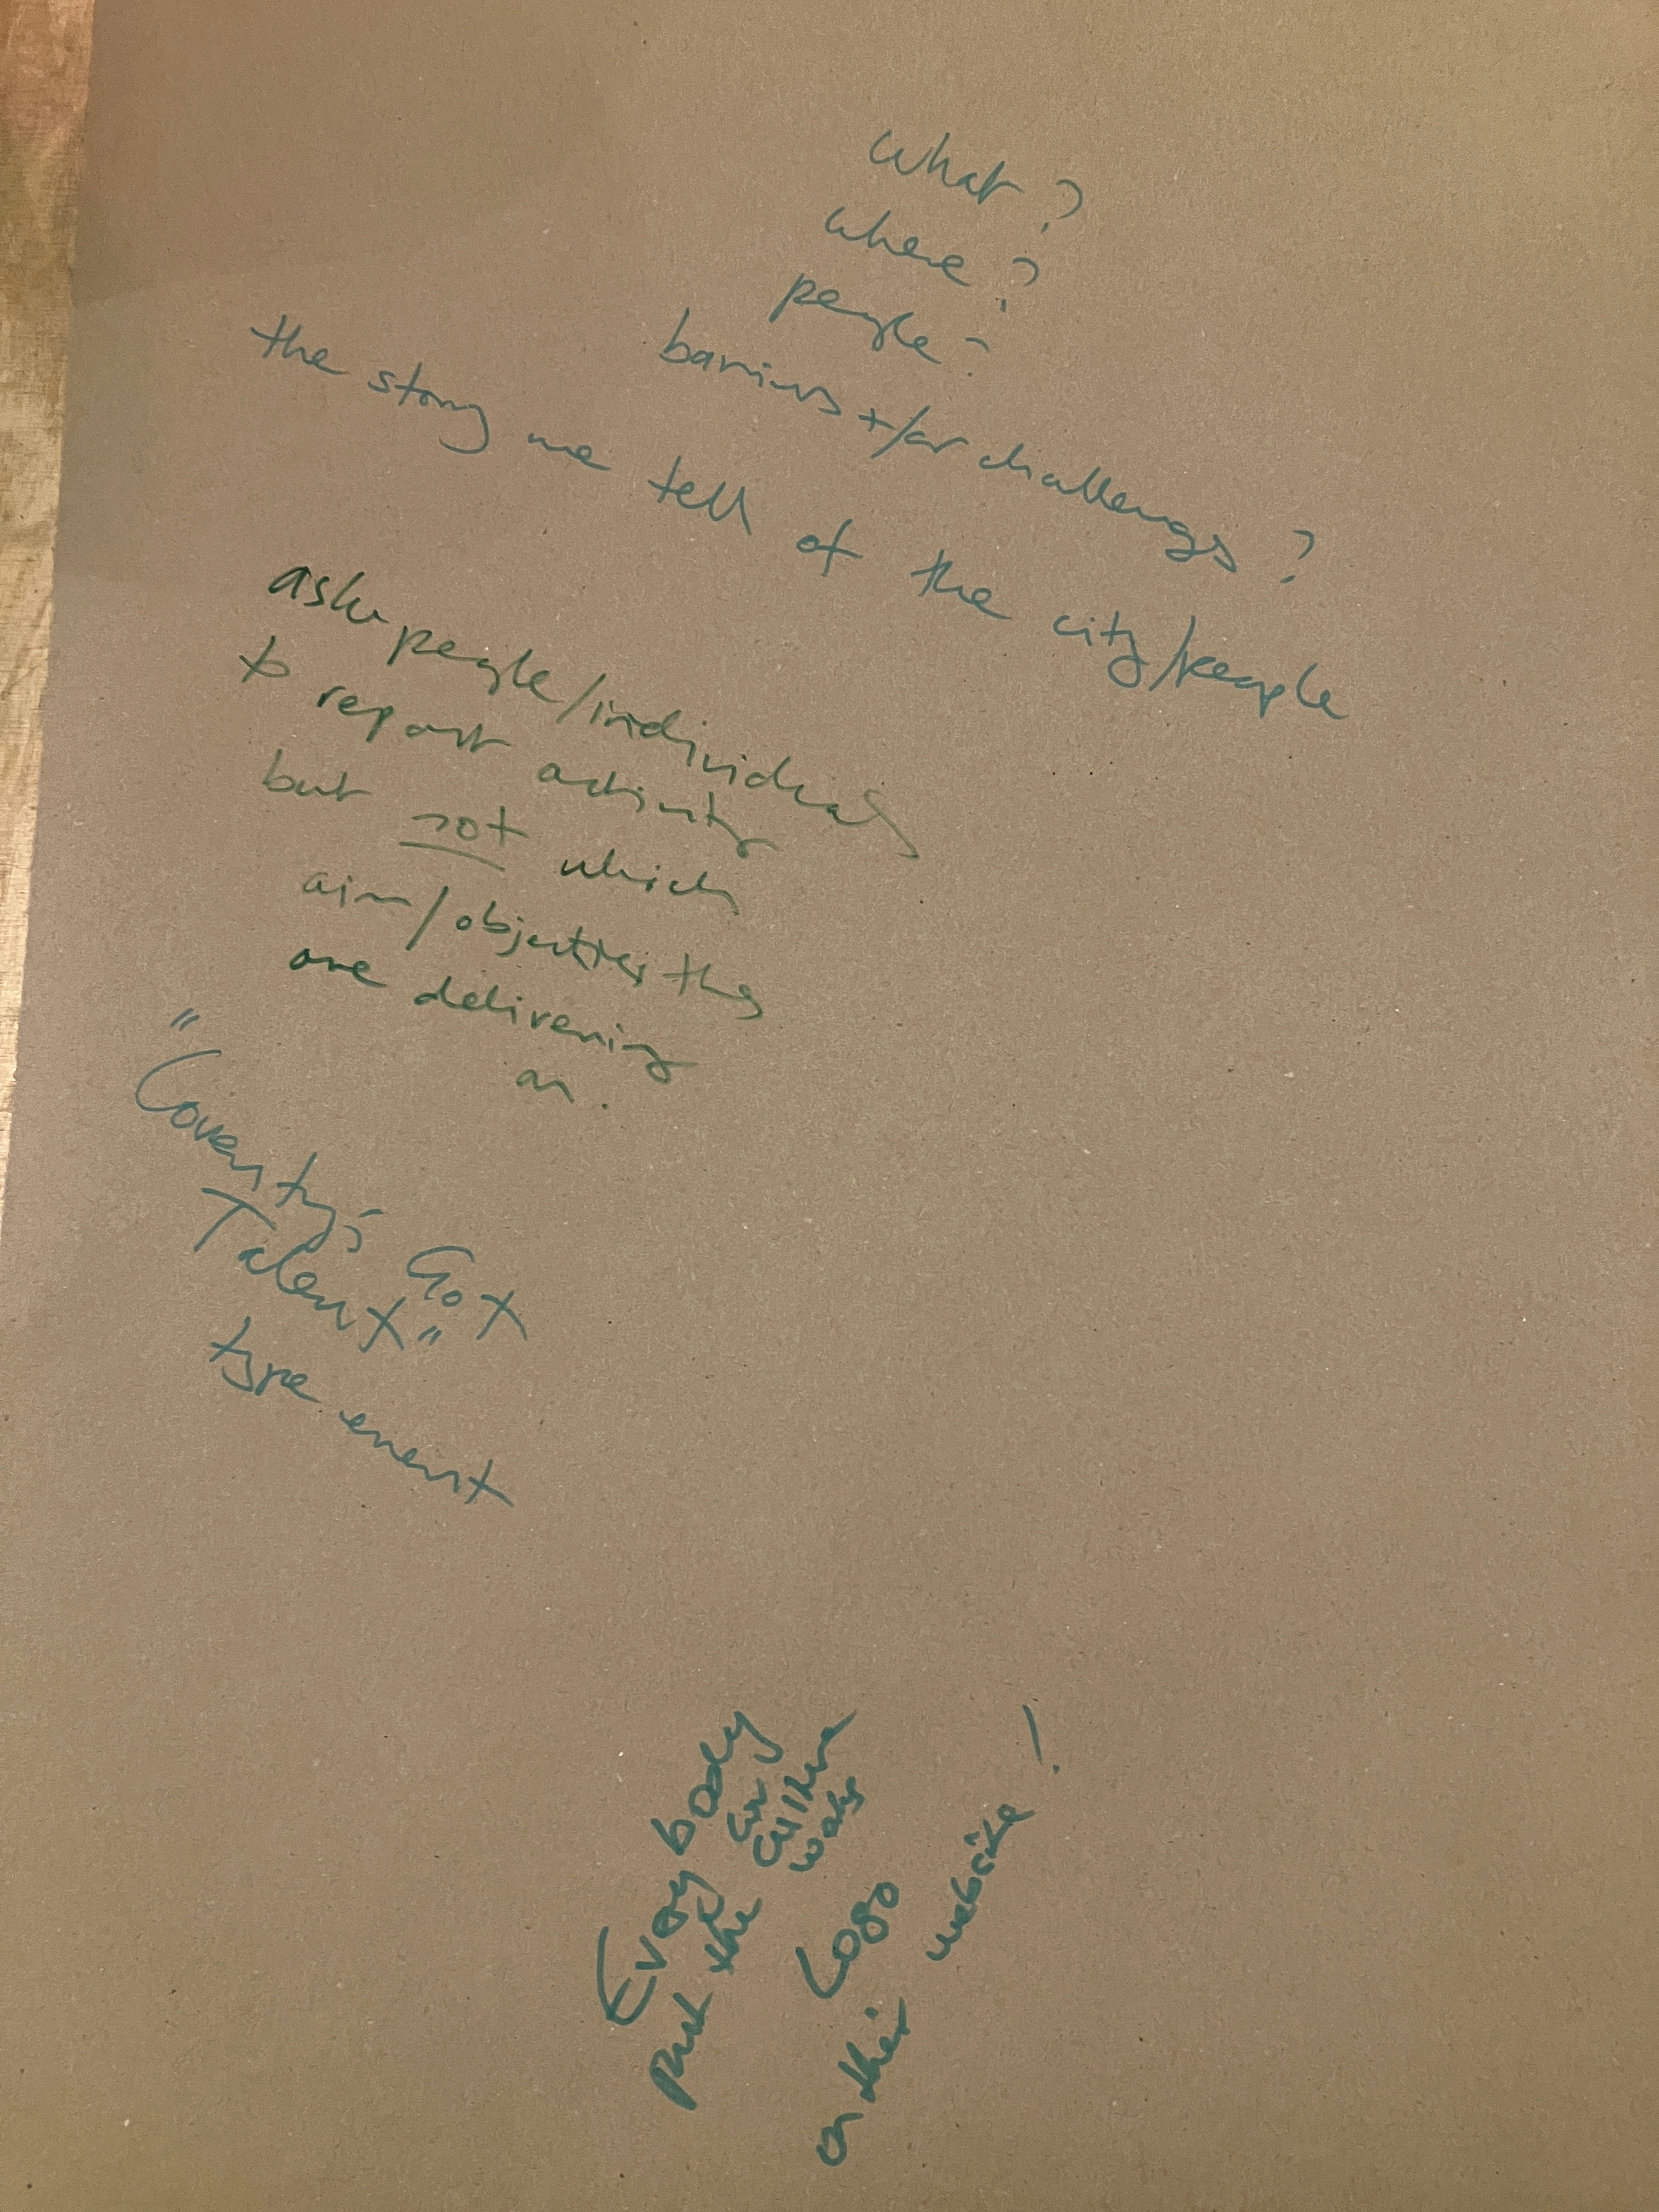 What?
where?
people?
barriers +/or challenges?
the story we tell of the city/people
ask people/individuals
to report activity
but not which
aim/objectives they
are delivering
on.
"Coventry's Got
Talent"
type event
Everybody
put the Cov
Culture
works
Logo
on their website!